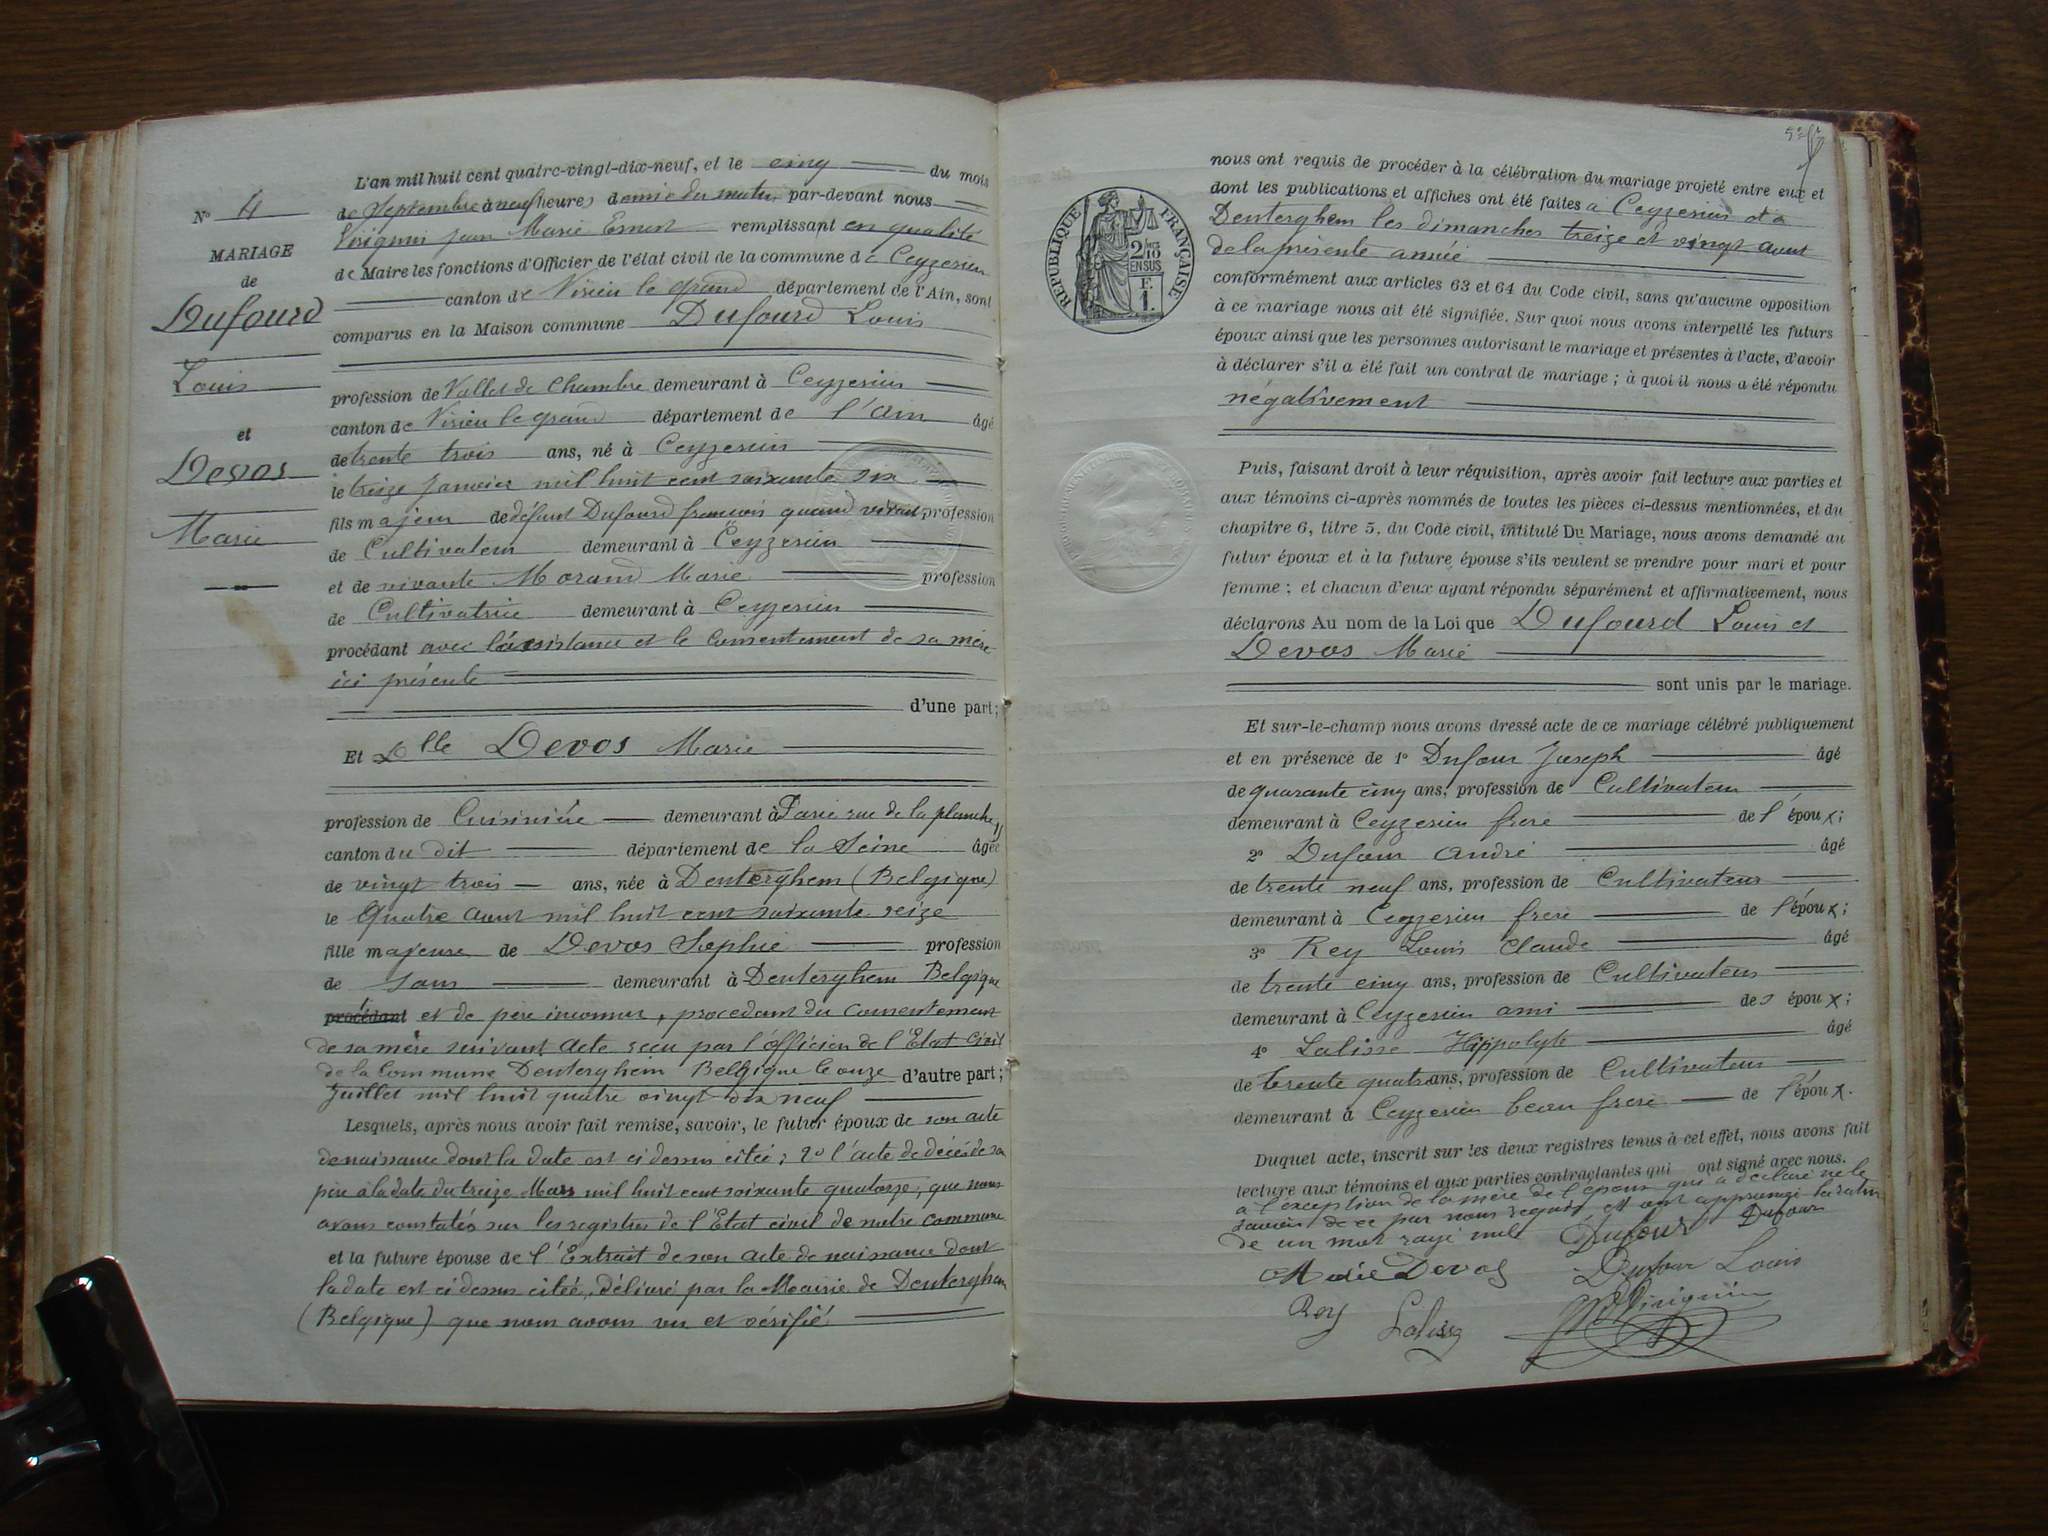 N° 4
MARIAGE
de
Dufourd
Louis
et
Devos
Marie
L'an mil huit cent quatre-vingt-dix-neuf, et le cinq du mois
de Septembre à neuf heures demie du matin par-devant nous
Jean Marie Ernest remplissant en qualité
de Maire les fonctions d'Officier de l'état civil de la commune de Ceyzerieu
canton de Virieu le grand département de l'Ain, sont
comparus en la Maison commune Dufourd Louis
profession de Vallet de Chambre demeurant à Ceyzerieu
canton de Virieu le grand département de l'Ain âgé
de trente trois ans, né à Ceyzerieu
le treize janvier mil huit cent soixante six
fils majeur de défunt Dufourd françois quand vivait profession
de Cultivateur demeurant à Ceyzerieu
et de vivante Morand Marie profession
de Cultivatrice demeurant à Ceyzerieu
procédant avec l'assistance et le consentement de sa mère
ici présente
d'une part;
Et Dlle Devos Marie
profession de Cuisinière demeurant à Paris rue de la planche
canton du dit département de la Seine âgée
de vingt trois ans, née à Denterghem (Belgique)
le Quatre aout mil huit cent soixante seize
fille majeure de Devos Sophie profession
de sans demeurant à Denterghem Belgique
procédant et de père inconnu, procedant du consentement
de sa mère suivant acte reçu par l'officier de l'Etat Civil
de la Commune Denterghem Belgique le onze d'autre part;
Juillet mil huit quatre vingt dix neuf
Lesquels, après nous avoir fait remise, savoir, le futur époux de son acte
de naissance dont la date est ci dessus citée; 2° l'acte de décès de son
père à la date du treize Mars mil huit cent soixante quatorze, que nous
avons constatés sur les registres de l'Etat civil de notre commune
et la future épouse de l'Extrait de son acte de naissance dont
la date est ci dessus citée, délivré par la Mairie de Denterghem
(Belgique) que nous avons vu et vérifié
RÉPUBLIQUE FRANÇAISE
2/10
EN SUS
F.
1.
nous ont requis de procéder à la célébration du mariage projeté entre eux et
dont les publications et affiches ont été faites à Ceyzerieu et à
Denterghem les dimanches treize et vingt aout
de la présente année
conformément aux articles 63 et 64 du Code civil, sans qu'aucune opposition
à ce mariage nous ait été signifiée. Sur quoi nous avons interpellé les futurs
époux ainsi que les personnes autorisant le mariage et présentes à l'acte, d'avoir
à déclarer s'il a été fait un contrat de mariage; à quoi il nous a été répondu
négativement
Puis, faisant droit à leur réquisition, après avoir fait lecture aux parties et
aux témoins ci-après nommés de toutes les pièces ci-dessus mentionnées, et du
chapitre 6, titre 5, du Code civil, intitulé Du Mariage, nous avons demandé au
futur époux et à la future épouse s'ils veulent se prendre pour mari et pour
femme; et chacun d'eux ayant répondu séparément et affirmativement, nous
déclarons Au nom de la Loi que Dufourd Louis et
Devos Marie
sont unis par le mariage.
Et sur-le-champ nous avons dressé acte de ce mariage célébré publiquement
et en présence de 1° Dufour Joseph âgé
de quarante cinq ans, profession de Cultivateur
demeurant à Ceyzerieu frere de l'époux;
2° Dufour André âgé
de trente neuf ans, profession de Cultivateur
demeurant à Ceyzerieu frere de l'époux;
3° Rey Louis Claude âgé
de trente cinq ans, profession de Cultivateur
demeurant à Ceyzerieu ami des époux;
4° Lalisse Hippolyte âgé
de trente quatre ans, profession de Cultivateur
demeurant à Ceyzerieu beau frere de l'époux.
Duquel acte, inscrit sur les deux registres tenus à cet effet, nous avons fait
lecture aux témoins et aux parties contractantes qui ont signé avec nous.
à l'exception de la mère de l'époux qui a déclaré ne le
savoir de ce par nous requis et ont approuvé la rature
de un mot rayé nul Dufour Dufour
Marie Devos Dufour Louis
Rey Lalisse